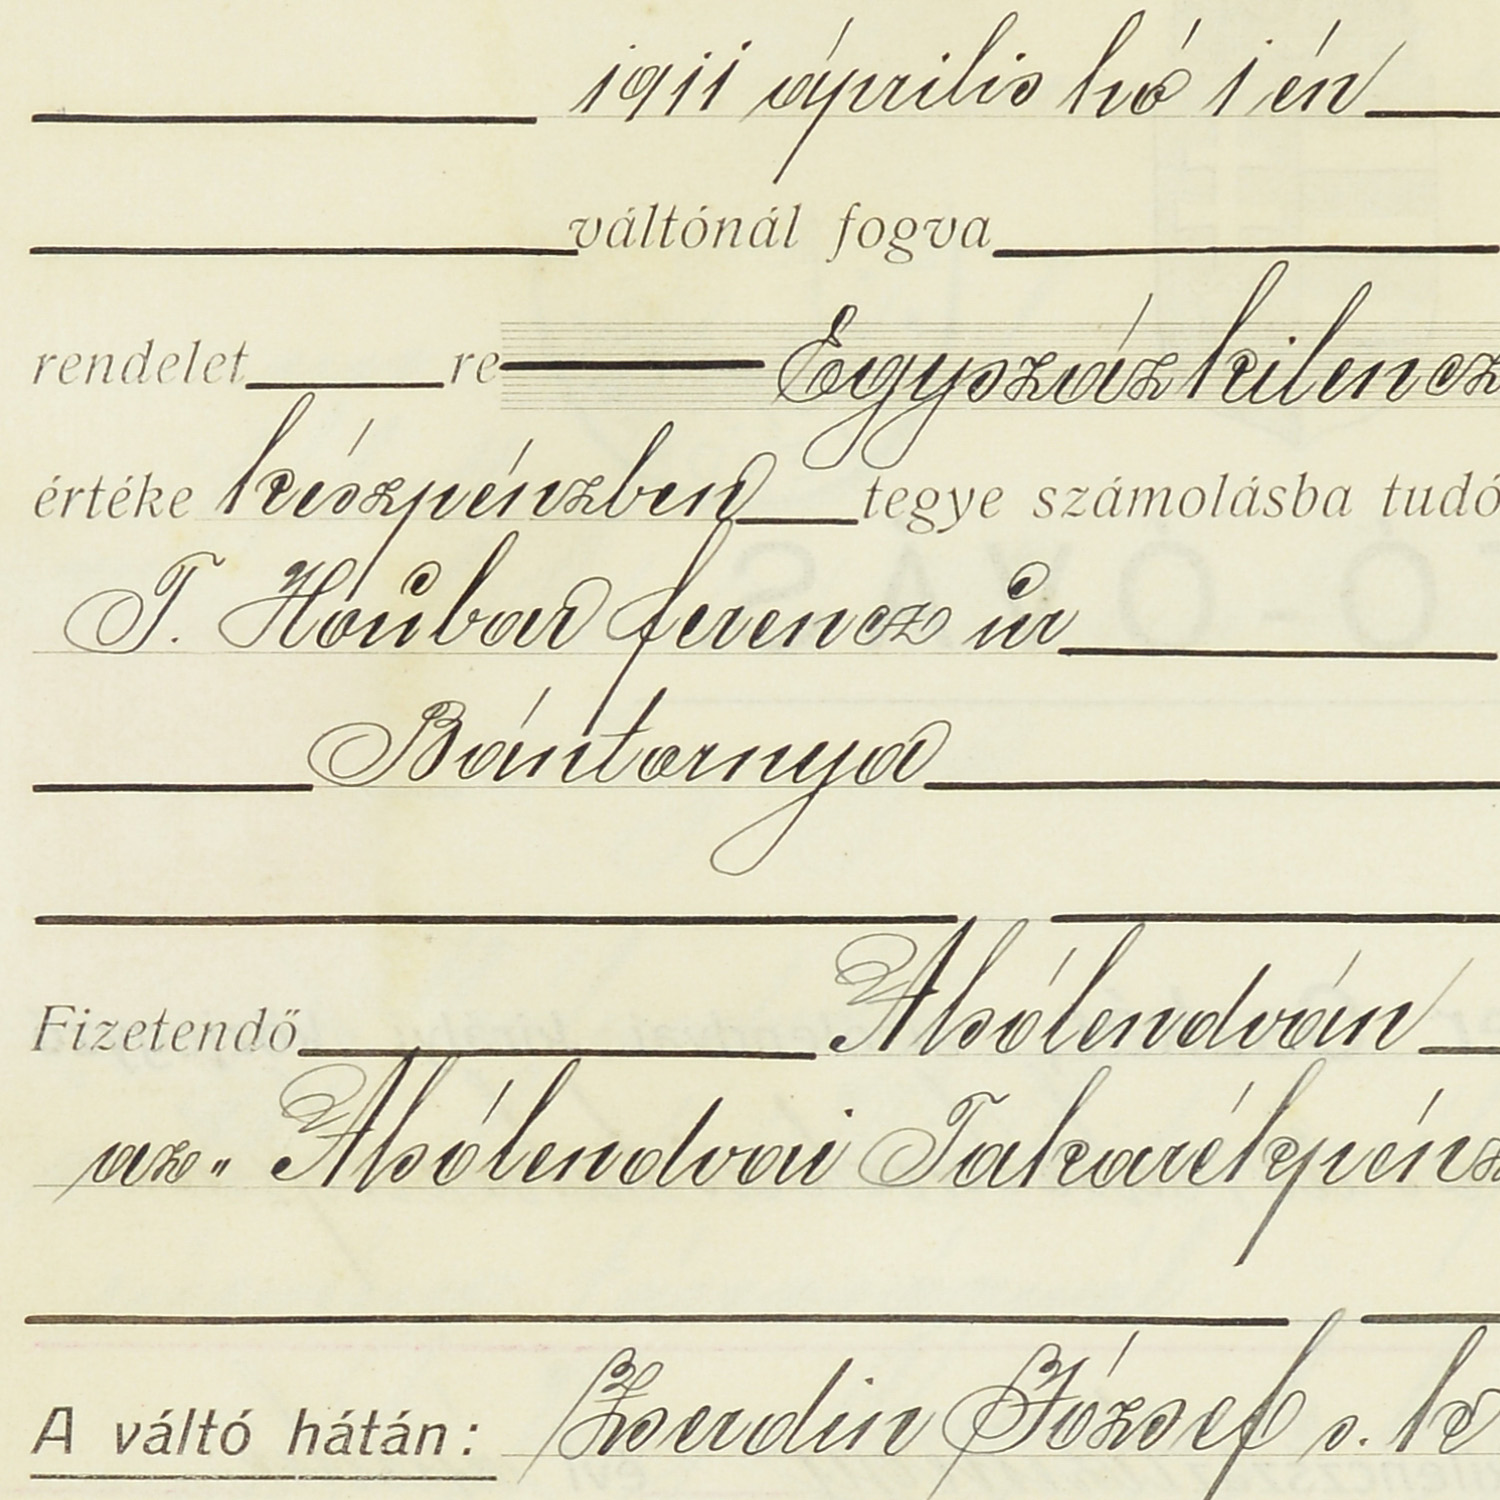 1911 április hó 1én
váltónál fogva
rendelet re Egyszázkilencz
értéke készpénzben tegye számolásba tudó
T. Houbar ferencz úr
Bántornya
Fizetendő Alsólendván
az „ Alsólendvai Takarékpénz
A váltó hátán: Zserdin József s. k